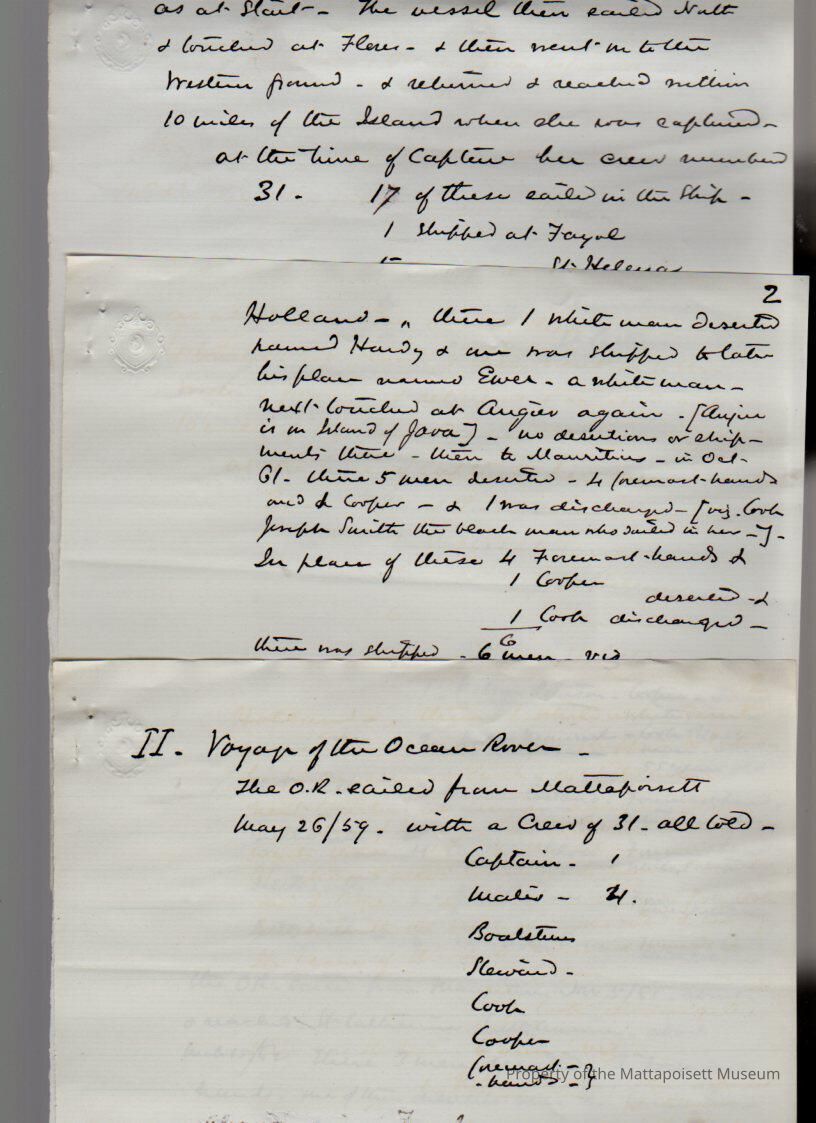 as at Start - The vessel then sailed North
& touched at Flores - & then went on to the
Western ground - & returned & reached within
10 miles of the Island when she was captured -
at the time of Capture her crew numbered
31 - 17 of these sailed in the Ship -
1 shipped at Fayal
St Helena
2
Holland - " there 1 white man deserted
named Hardy & one was shipped to take
his place named Ewer - a white man -
next touched at Angier again - [Angier
is in Island of Java] - no desertions or ship-
ments there - then to Mauritius - in Oct -
61 - there 5 men deserted - 4 foremast-hands
and 1 Cooper - & 1 was discharged - [viz. Cook
Joseph Smith the black man who sailed in her -] -
In place of these 4 Foremast-hands &
1 Cooper
deserted - &
1 Cook discharged -
6
there was shipped - 6 men - viz
II - Voyage of the Ocean Rover -
The O.R. sailed from Mattapoisett
May 26/59 - with a Crew of 31 - all told -
Captain - 1
Mates - 4.
Boatsteers
Steward -
Cook
Cooper
foremast- }
- hands - }
Property of the Mattapoisett Museum